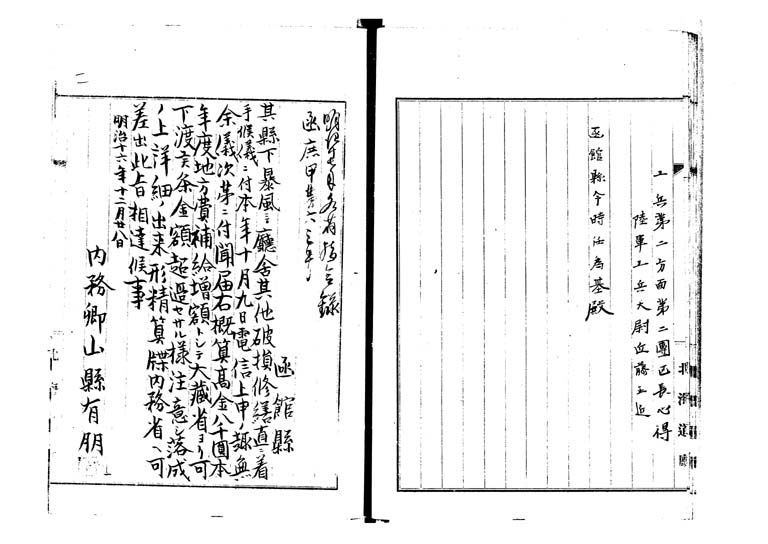 工兵第二方面第二團区長心得
陸軍工兵大尉近藤正近
函館縣令時任為基殿
北海道廳
二
函館縣
其縣下暴風ニ廳舎其他破損修繕直ニ着
手候義ニ付本年十月九日電信上申ノ趣無
余儀次第ニ付聞届右概算髙金八千圓本
年度地方費補給増額トシテ大藏省ヨリ可
下渡ニ条金額超過セサル様注意シ落成
ノ上詳細ノ出来形精算牒内務省ヘ可
差出此旨相達候事
明治十六年十二月廿八日
内務卿山縣有朋